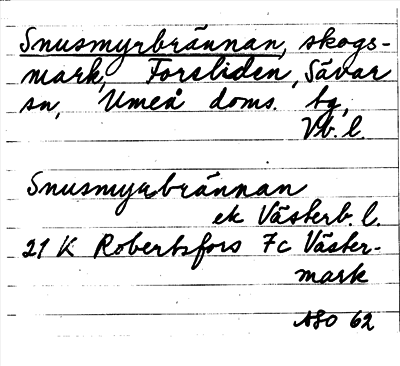 Snusmyrbrännan, skogs-
mark, Forsliden, Sävar
sn, Umeå doms. tg,
Vb. l.
Snusmyrbrännan
ek Västerb. l.
21 K Robertsfors 7c Väster-
mark
ASO 62